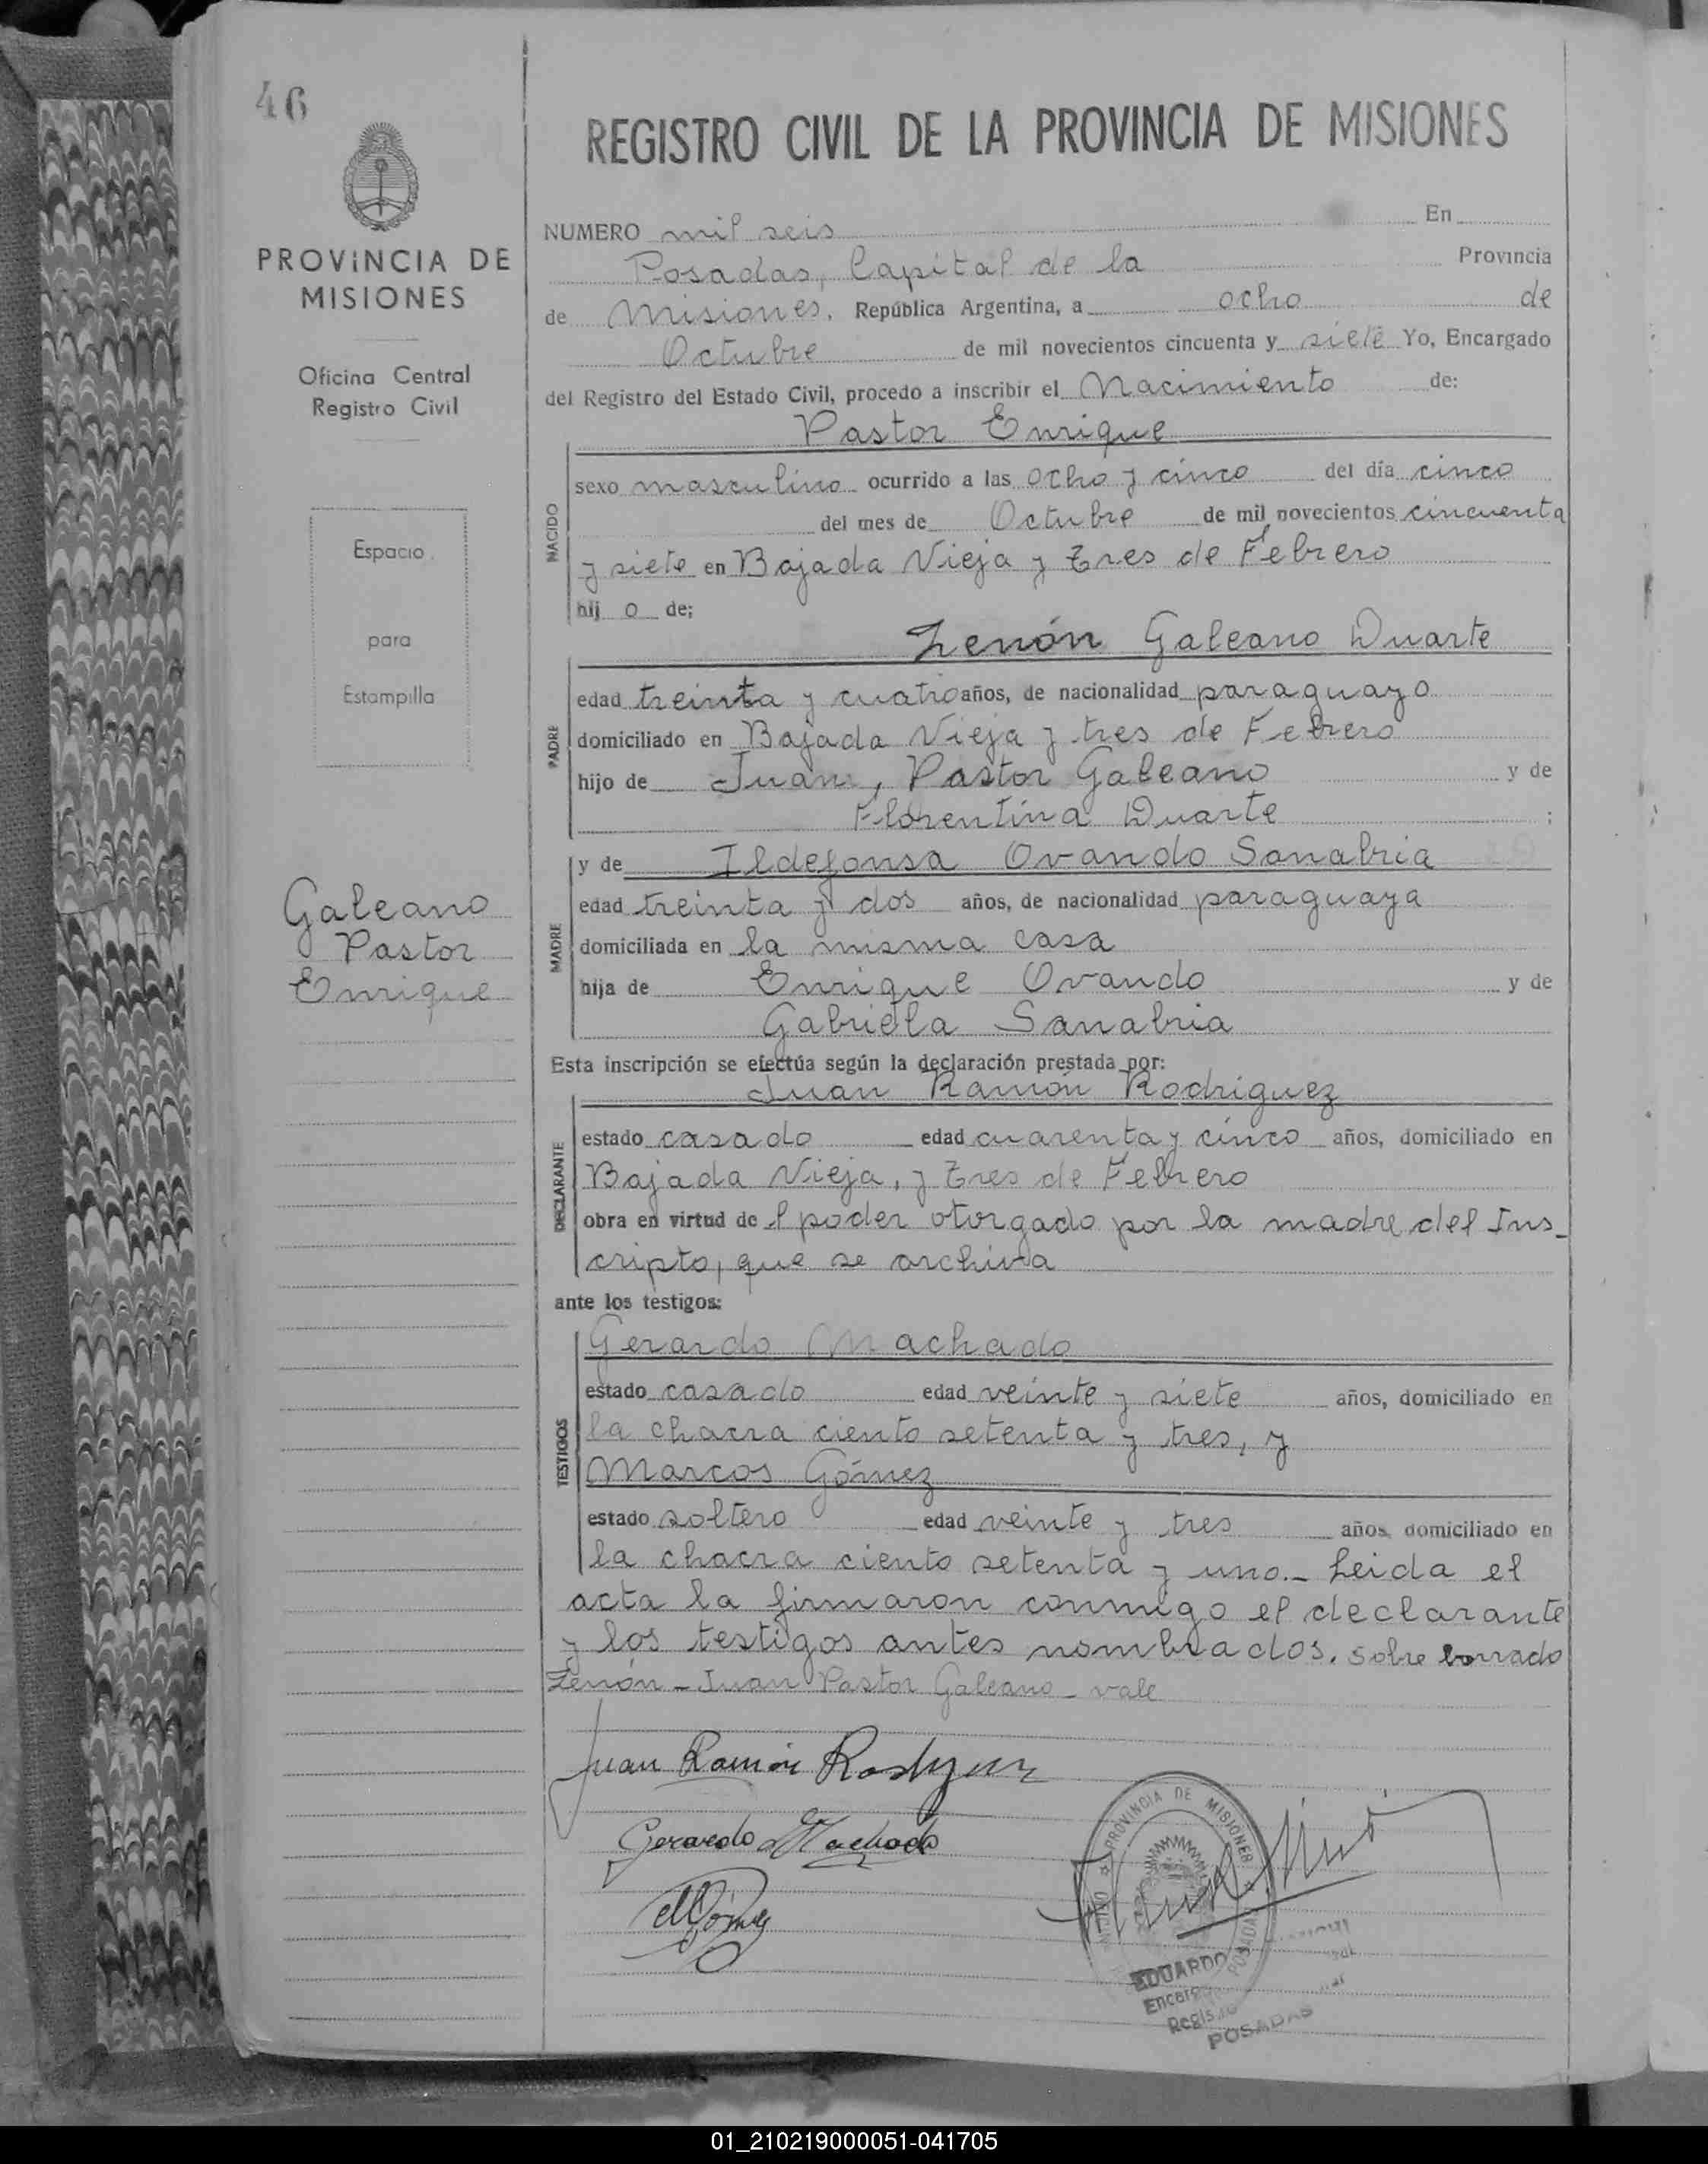 46
PROVINCIA DE
MISIONES
Oficina Central
Registro Civil
Espacio
para
Estampilla
Galeano
Pastor
Enrique
REGISTRO CIVIL DE LA PROVINCIA DE MISIONES
NUMERO mil seis En
Posadas, Capital de la Provincia
de Misiones, República Argentina, a ocho de
Octubre de mil novecientos cincuenta y siete Yo, Encargado
del Registro del Estado Civil, procedo a inscribir el Nacimiento de:
Pastor Enrique
NACIDO
sexo masculino ocurrido a las ocho y cinco del día cinco
del mes de Octubre de mil novecientos cincuenta
y siete en Bajada Vieja y Tres de Febrero
hij o de;
Zenón Galeano Duarte
PADRE
edad treinta y cuatro años, de nacionalidad paraguayo
domiciliado en Bajada Vieja y tres de Febrero
hijo de Juan, Pastor Galeano y de
Florentina Duarte ;
y de Ildefonsa Ovando Sanabria
MADRE
edad treinta y dos años, de nacionalidad paraguaya
domiciliada en la misma casa
hija de Enrique Ovando y de
Gabriela Sanabria
Esta inscripción se efectúa según la declaración prestada por:
Juan Ramón Rodriguez
DECLARANTE
estado casado edad cuarenta y cinco años, domiciliado en
Bajada Vieja, y Tres de Febrero
obra en virtud de l poder otorgado por la madre del Ins-
cripto, que se archiva
ante los testigos:
Gerardo Machado
TESTIGOS
estado casado edad veinte y siete años, domiciliado en
la chacra ciento setenta y tres, y
Marcos Gómez
estado soltero edad veinte y tres años, domiciliado en
la chacra ciento setenta y uno.- Leida el
acta la firmaron conmigo el declarante
y los testigos antes nombrados. Sobre borrado
Zenón - Juan Pastor Galeano - vale
Juan Ramón Rodriguez
Gerardo Machado
MGómez
PROVINCIA DE MISIONES
POSADAS
EDUARDO
POSADAS
01_210219000051-041705